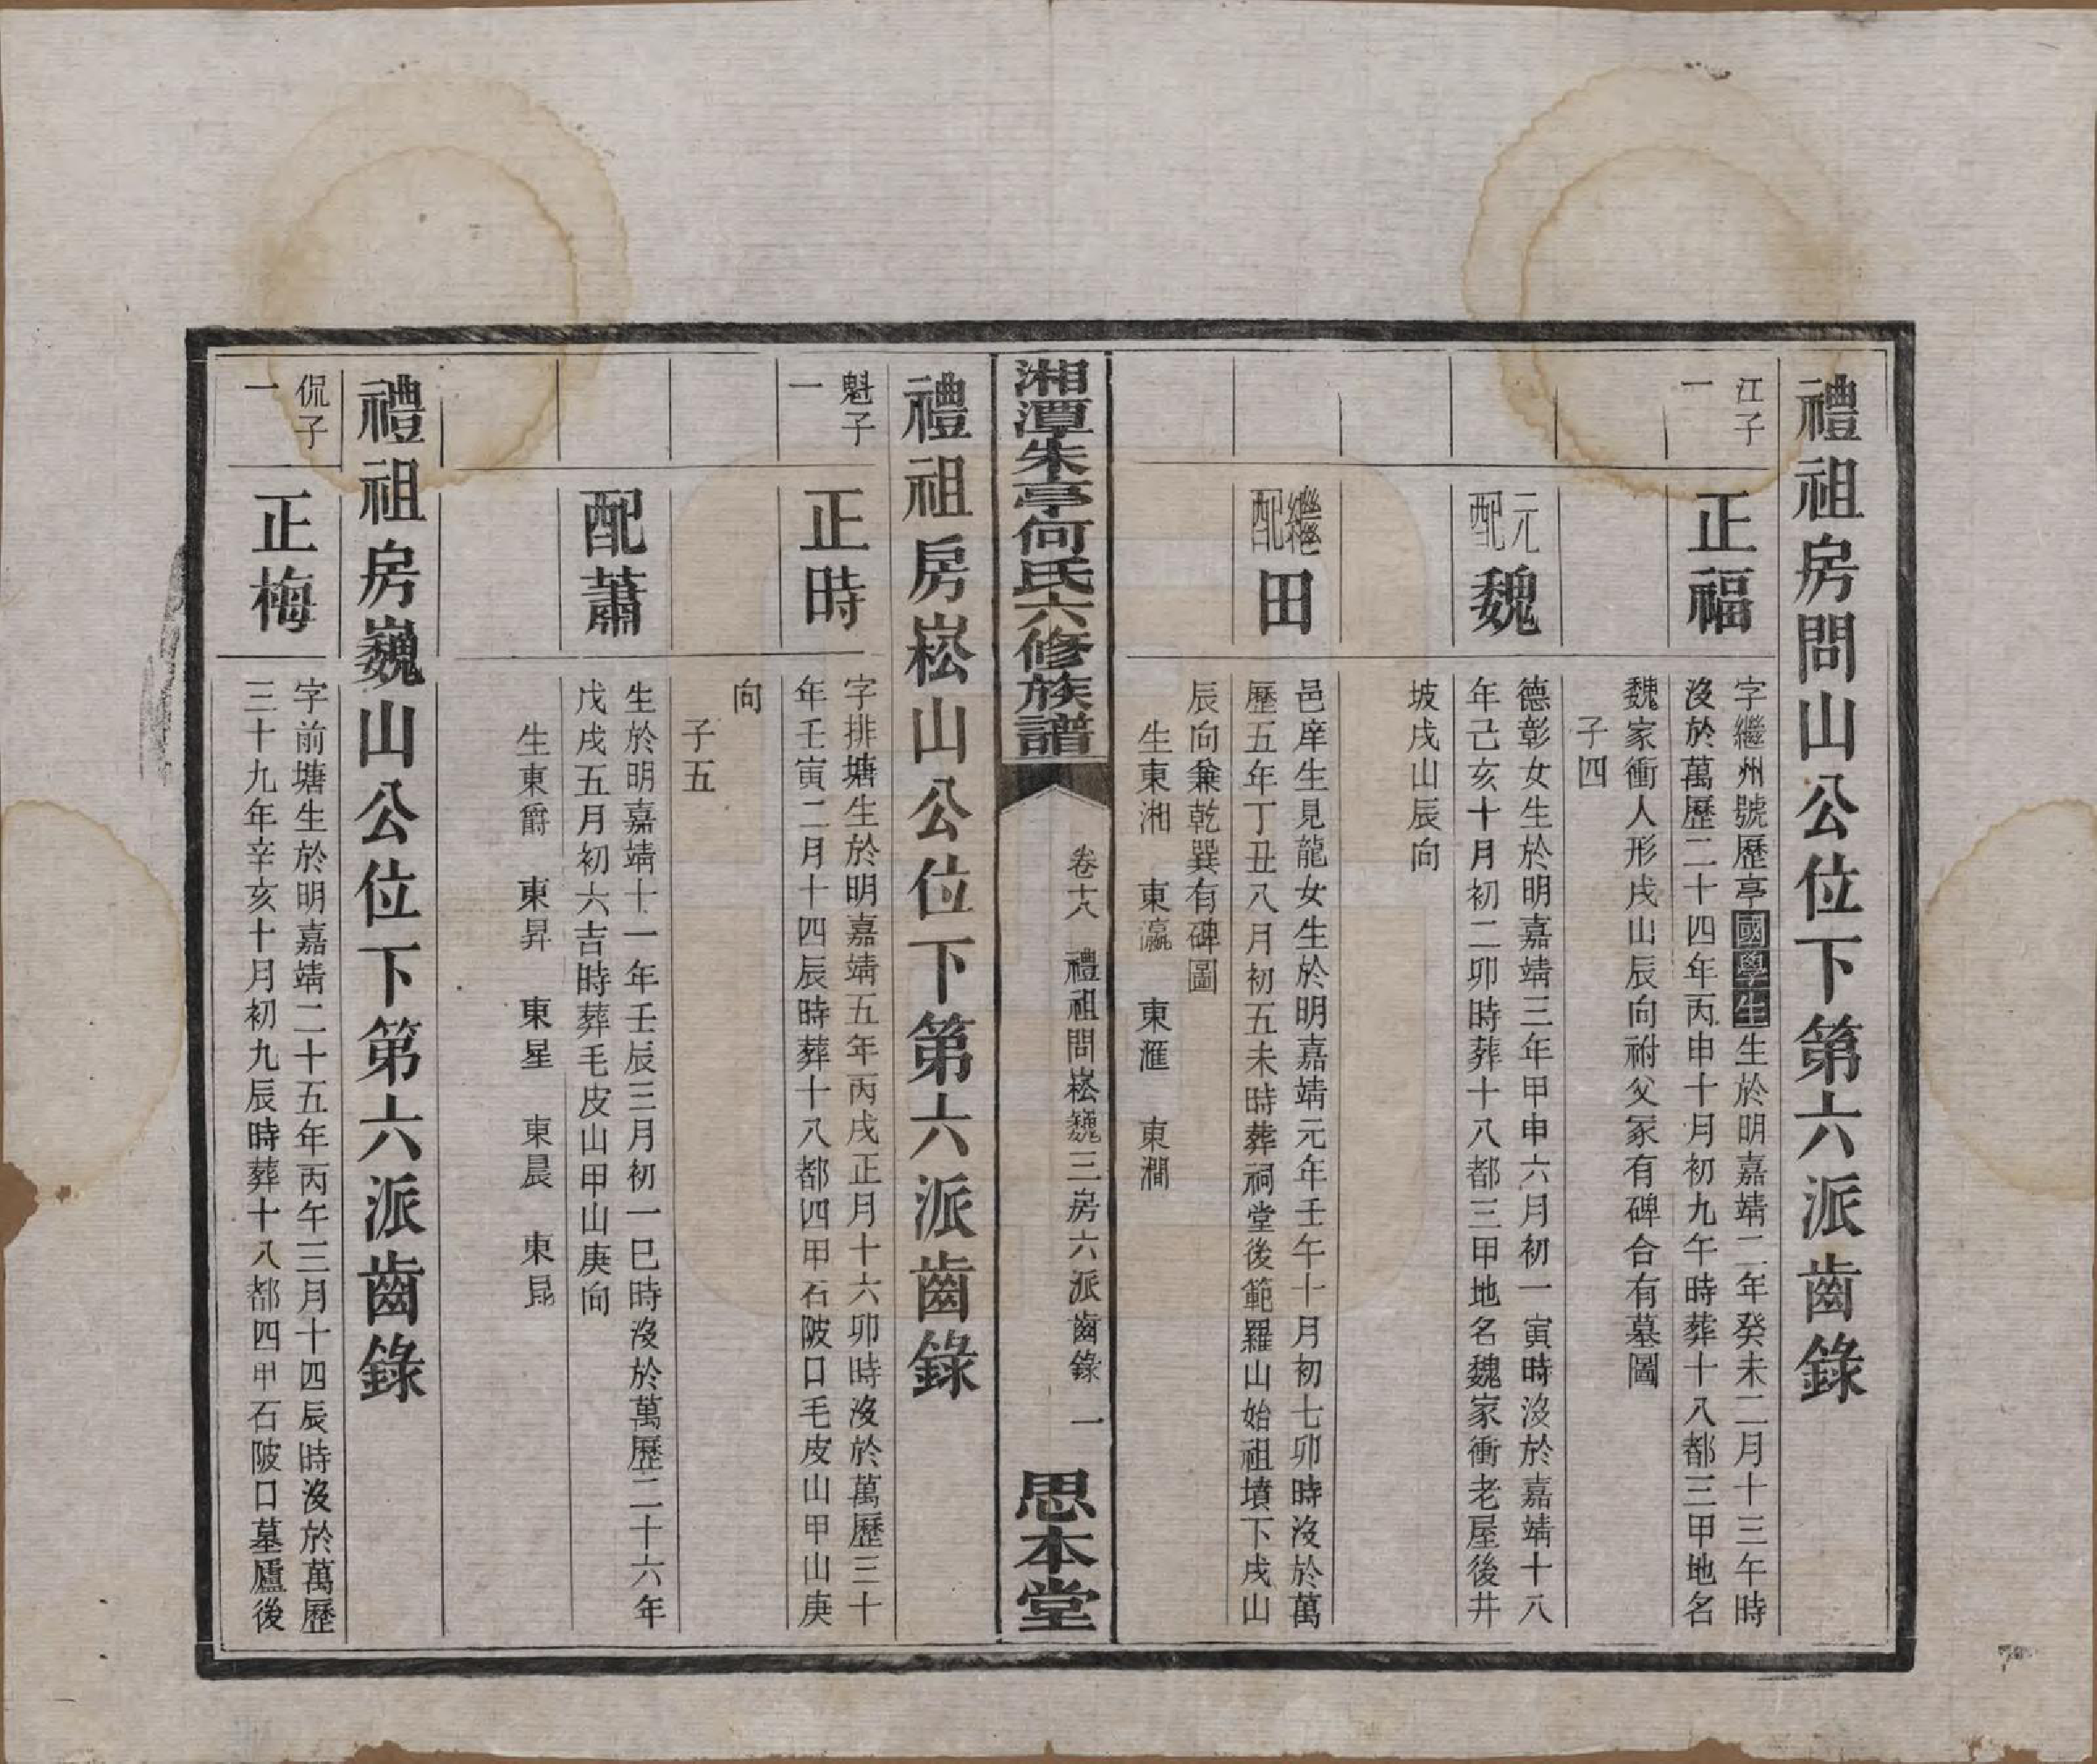 禮祖房問山公位下第六派齒錄
江子
一
正福
字繼州號歷亭國學生生於明嘉靖二年癸未二月十三午時
沒於萬歷二十四年丙申十月初九午時葬十八都三甲地名
魏家衝人形戌山辰向祔父冢有碑合有墓圖
子四
元配魏
德彰女生於明嘉靖三年甲申六月初一寅時沒於嘉靖十八
年己亥十月初二卯時葬十八都三甲地名魏家衝老屋後井
坡戌山辰向
繼配田
邑庠生見龍女生於明嘉靖元年壬午十月初七卯時沒於萬
歷五年丁丑八月初五未時葬祠堂後範羅山始祖墳下戌山
辰向兼乾巽有碑圖
生東湘 東瀛 東滙 東澗
湘潭朱亭何氏六修族譜
卷十八 禮祖問崧巍三房六派齒錄 一
思本堂
禮祖房崧山公位下第六派齒錄
魁子
一
正時
字排塘生於明嘉靖五年丙戌正月十六卯時沒於萬歷三十
年壬寅二月十四辰時葬十八都四甲石陂口毛皮山甲山庚
向
子五
配蕭
生於明嘉靖十一年壬辰三月初一巳時沒於萬歷二十六年
戊戌五月初六吉時葬毛皮山甲山庚向
生東爵 東昇 東星 東晨 東昆
禮祖房巍山公位下第六派齒錄
侃子
一
正梅
字前塘生於明嘉靖二十五年丙午三月十四辰時沒於萬歷
三十九年辛亥十月初九辰時葬十八都四甲石陂口墓廬後